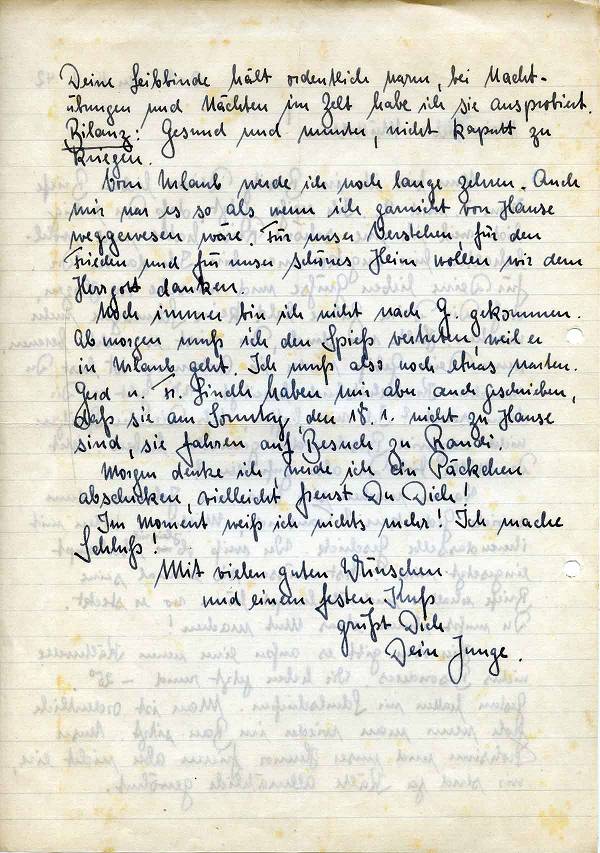 Deine Leibbinde hält ordentlich warm, bei Nacht-
übungen und Nächten im Zelt habe ich sie ausprobiert.
Bilanz: Gesund und munter, nicht kaputt zu
kriegen.
Vom Urlaub werde ich noch lange zehren. Auch
mir war es so als wenn ich garnicht von Hause
weggewesen wäre. Für unser Verstehen, für den
Frieden und für unser schönes Heim wollen wir dem
Herrgott danken.
Noch immer bin ich nicht nach G. gekommen.
Ab morgen muß ich den Spieß vertreten, weil er
in Urlaub geht. Ich muß also noch etwas warten.
Gerd u. Fr. Lindh haben mir aber auch geschrieben,
daß sie am Sonntag, den 18. 1. nicht zu Hause
sind, sie fahren auf Besuch zu Randi.
Morgen denke ich, werde ich ein Päckchen
abschicken, vielleicht freust Du Dich!
Im Moment weiß ich nichts mehr! Ich mache
Schluß!
Mit vielen guten Wünschen
und einem festen Kuß
grüßt Dich
Dein Junge.